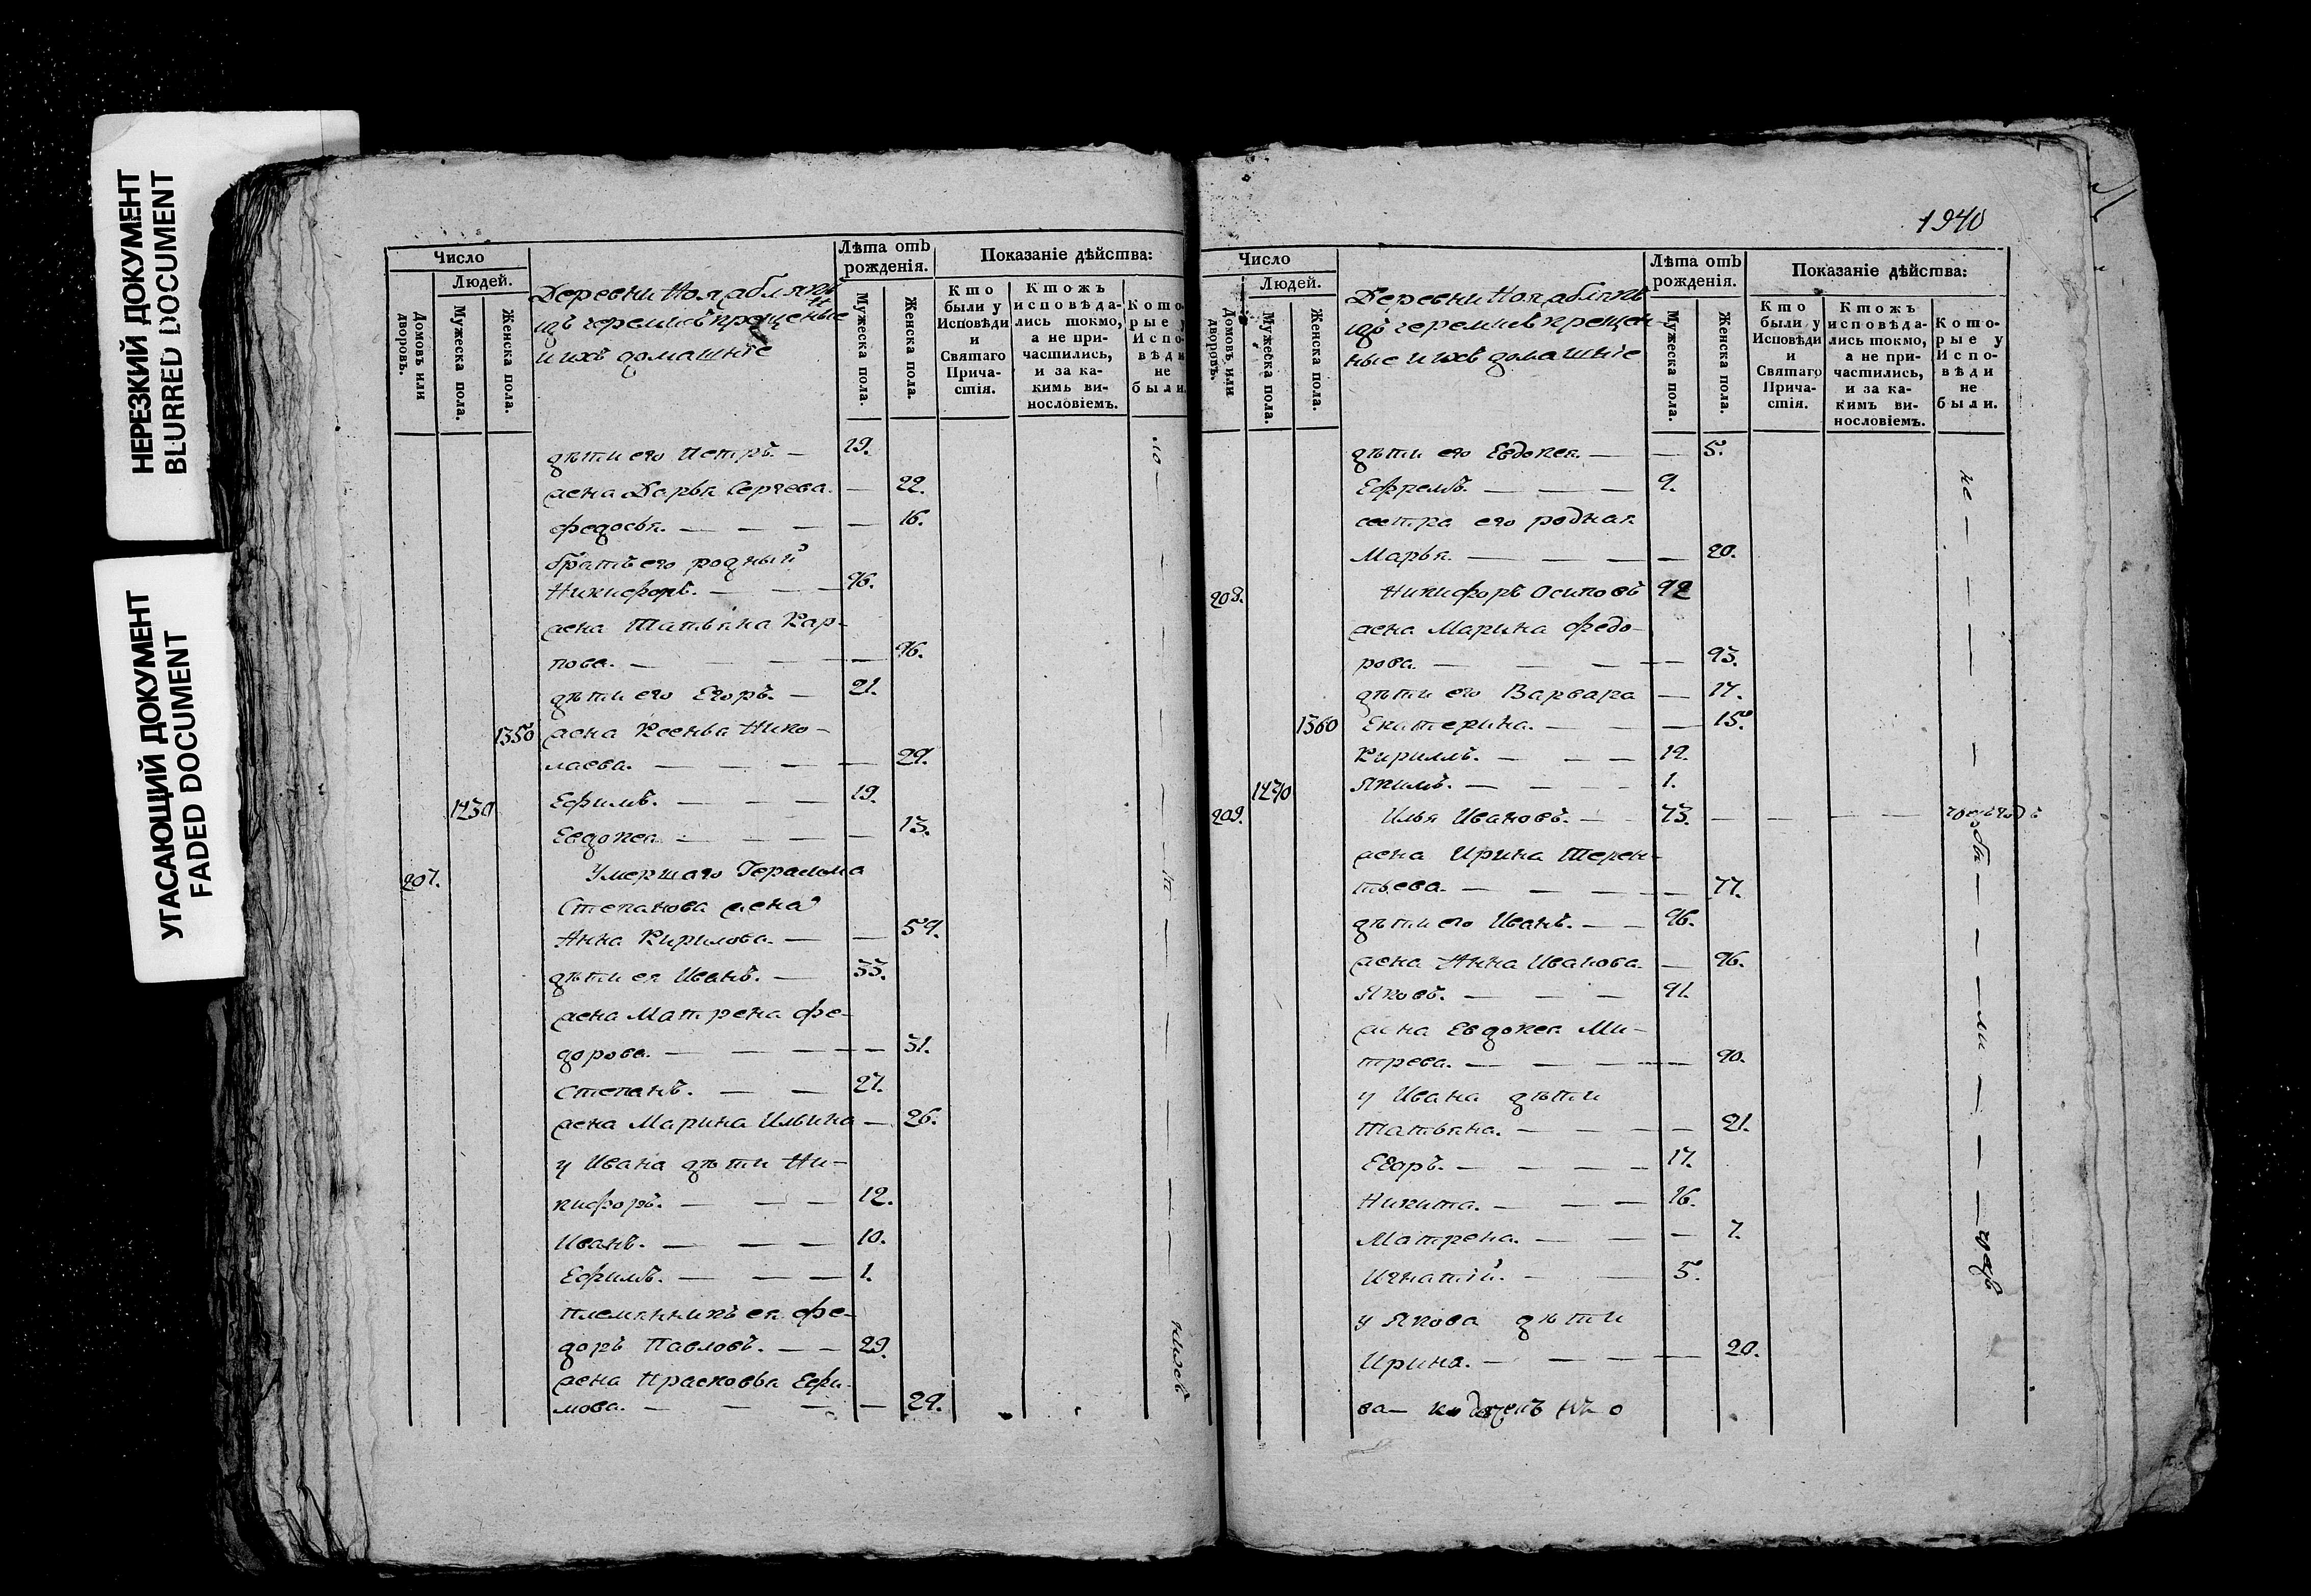 НЕРЕЗКИЙ ДОКУМЕНТ
BLURRED DOCUMENT
УГАСАЮЩИЙ ДОКУМЕНТ
FADED DOCUMENT
Число
Людей.
Домовъ или дворовъ.
Мужеска пола.
Женска пола.
Деревни
черемисъ крещеные
и ихъ домашніе
Лѣта отъ рожденія.
Мужеска пола.
Женска пола.
Показаніе дѣйства:
Кто были у Исповѣди и Святаго Прича-стія.
Ктожъ исповѣда-лись токмо, а не при-частились, и за ка-кимъ ви-нословіемъ.
Кото-рые у Испо-вѣди не были.
дѣти его Петръ. — 19.
жена Дарья Сергеева. — 22.
Федосья. — — — — 16.
братъ его родный
Никифоръ. — — — 46.
жена Татьяна Кар-
пова. — — — — — 46.
дѣти его Егоръ. — 21.
1350 жена Ксенья Нико-
лаева. — — — — — 22.
1230 Ефимъ. — — — 19.
Евдокея — — — — 13.
207. Умершаго Герасима
Степанова жена
Анна Кирилова. — — 59.
дѣти ея Иванъ. — 33.
жена Матрена Фе-
дорова. — — — — — 31.
Степанъ. — — 27.
жена Марина Ильина — 26.
у Ивана дѣти Ни-
кифоръ. — — — 12.
Иванъ. — — — 10.
Ефимъ. — — — 1.
племянникъ ея Фе-
доръ Павловъ. — — 29.
жена Прасковья Ефи-
мова. — — — — — 29.
1940
Число
Людей.
Домовъ или дворовъ.
Мужеска пола.
Женска пола.
Деревни
черемисъ крещен-
ные и ихъ домашніе
Лѣта отъ рожденія.
Мужеска пола.
Женска пола.
Показаніе дѣйства:
Кто были у Исповѣди и Святаго Прича-стія.
Ктожъ исповѣда-лись токмо, а не при-частились, и за ка-кимъ ви-нословіемъ.
Кото-рые у Испо-вѣди не были.
дѣти его Евдокея. — — 5.
Ефремъ. — — — 9.
сестра его родная
Марья. — — — — 20.
208. Никифоръ Осиповъ 42
жена Марина Федо-
рова. — — — — — 43.
дѣти его Варвара — 17.
1360 Екатерина. — — — 15.
Кириллъ. — — — 12.
1240 Якимъ. — — — — 1.
209. Илья Ивановъ. — — 73. — — — —
жена Ирина Терен-
тьева. — — — — — 77.
дѣти его Иванъ. — — 46.
жена Анна Иванова. — 46.
Яковъ. — — — 41.
жена Евдокея Ми-
трева. — — — — — 40.
у Ивана дѣти
Татьяна. — — — — 21.
Егоръ. — — — — 17.
Никита. — — — 16.
Матрена. — — — 7.
Игнатій. — — 5.
у Якова дѣти
Ирина. — — — — — 20.